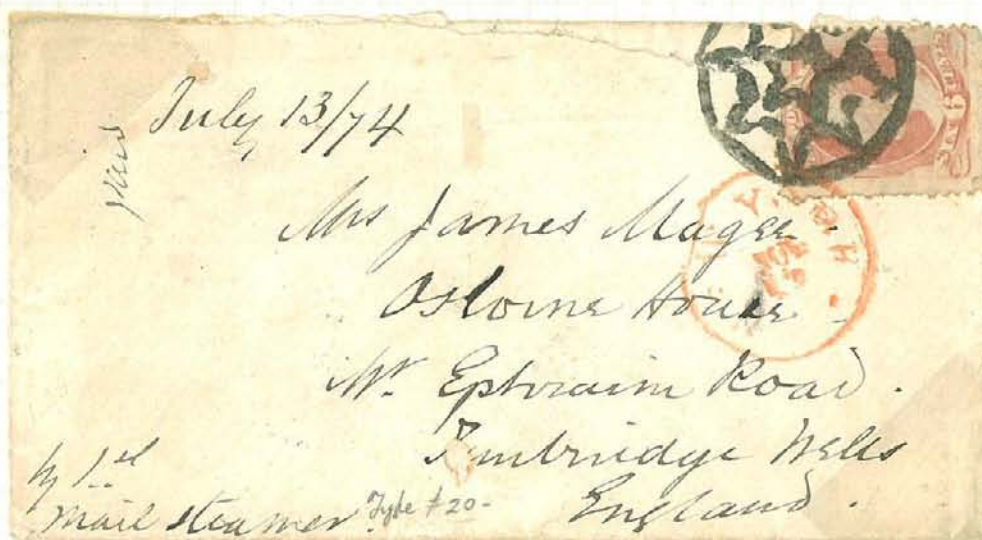 July 13/74
Mrs James Magee
Osborne House
Mt Ephraim Road.
Tunbridge Wells
England.
by 1st
Mail steamer.
Type #20-